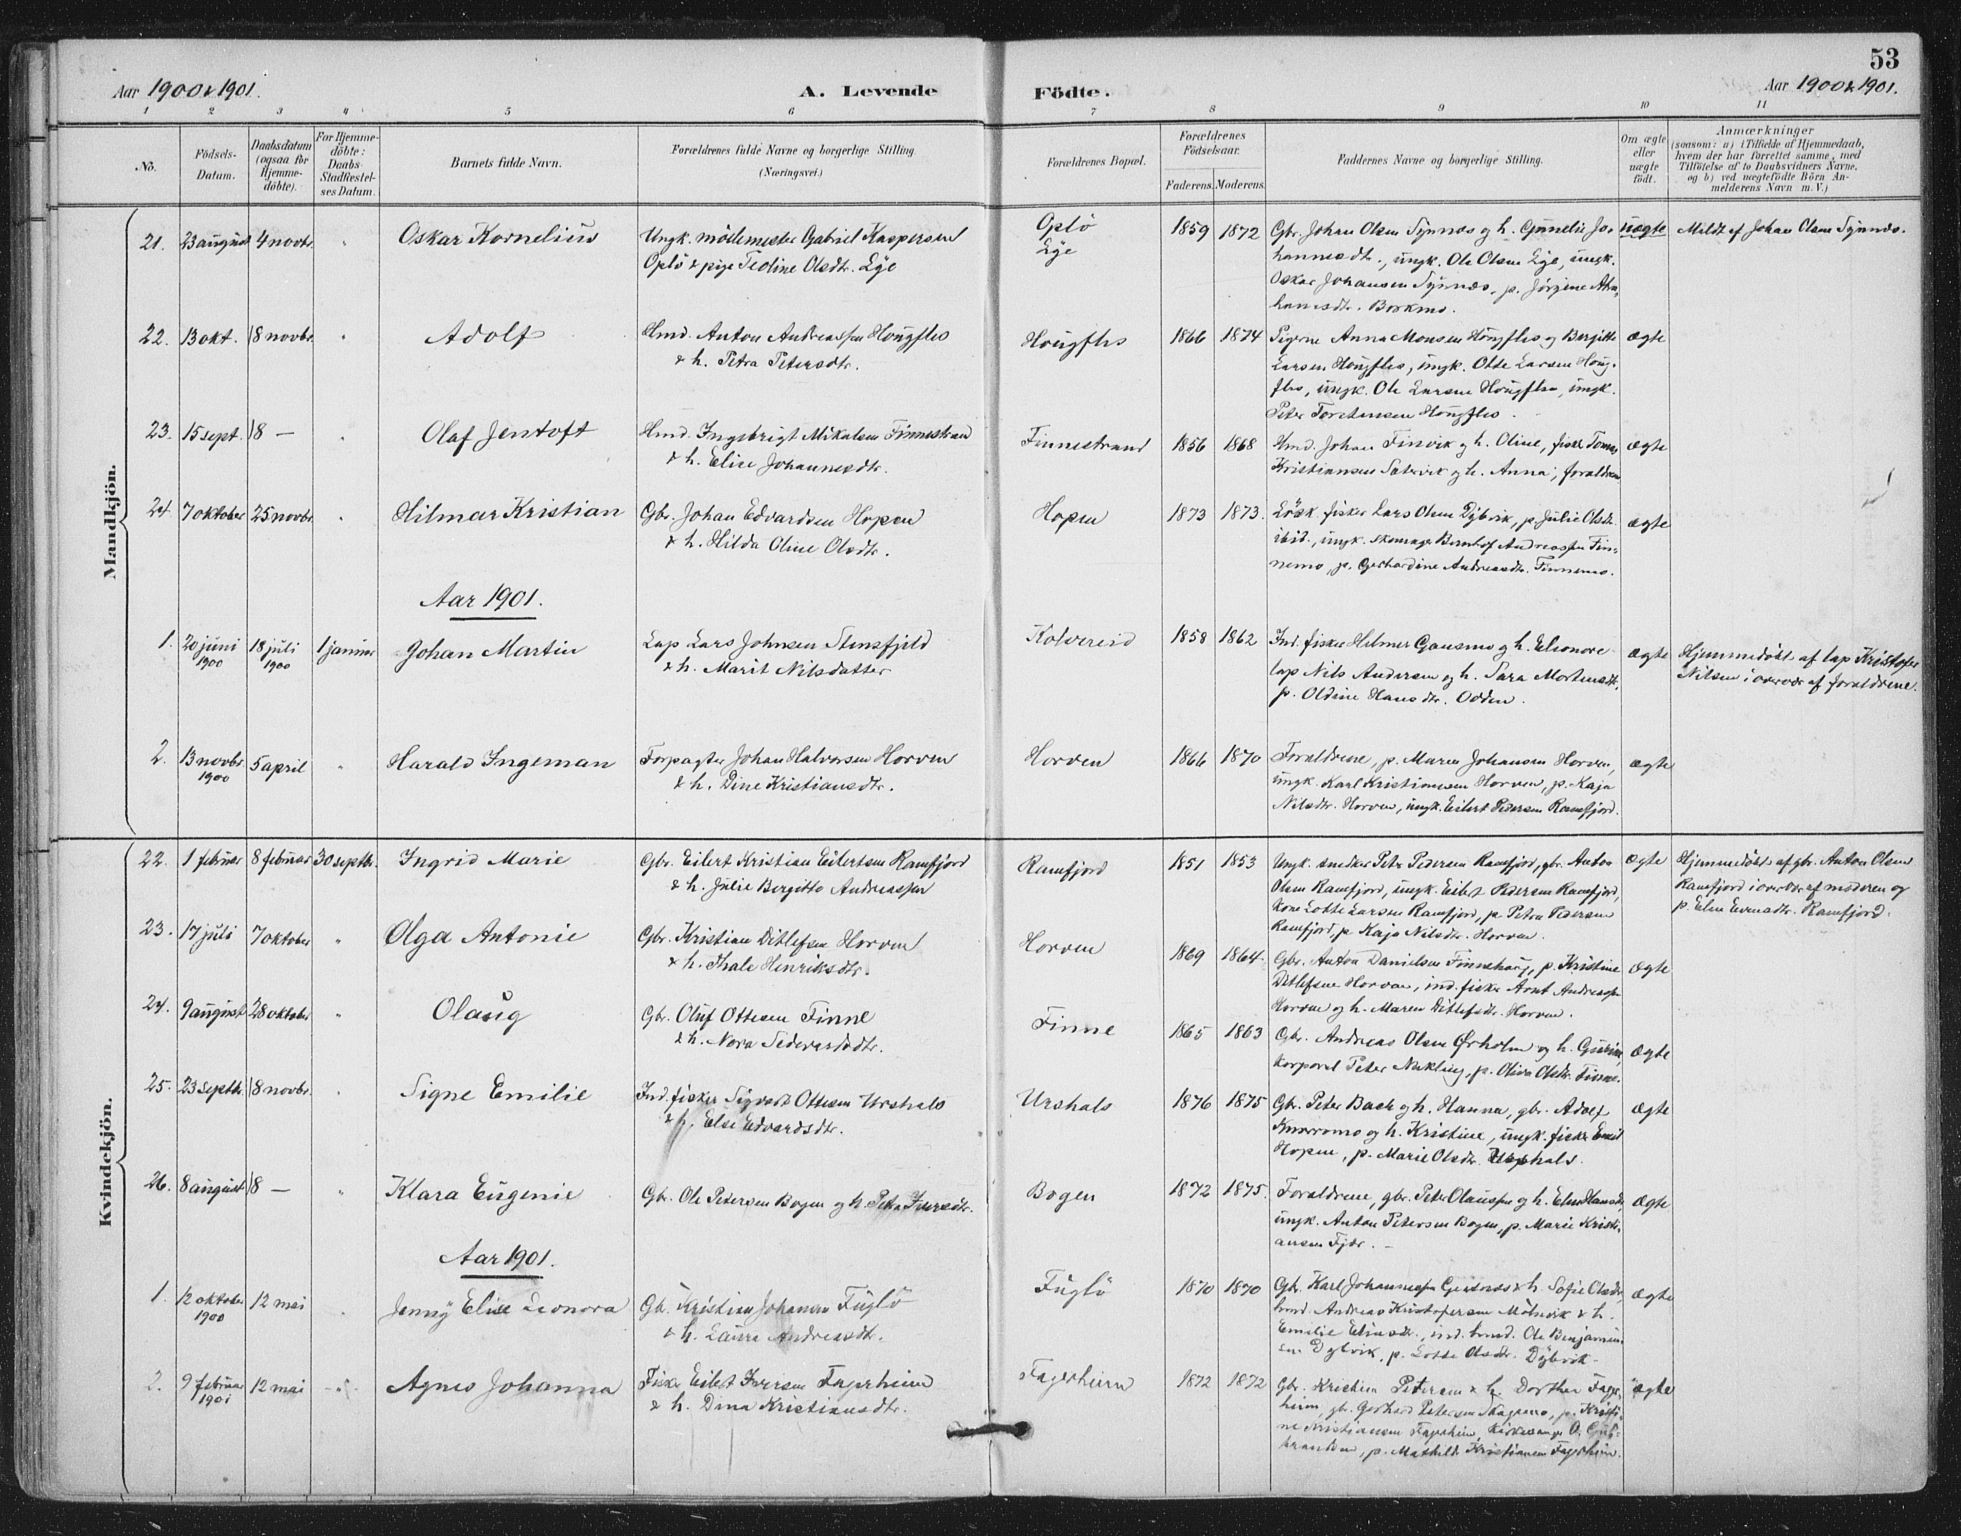 53
Aar 1900 & 1901. A. Levende Födte. Aar 1900 & 1901.
1 2 3 4 5 6 7 8 9 10 11
No. Födsels-Datum. Daabsdatum (ogsaa for Hjemmedöbte). For Hjemmedöbte: Daabs Stadfæstelses Datum. Barnets fulde Navn. Forældrenes fulde Navne og borgerlige Stilling. (Næringsvei.) Forældrenes Bopæl. Forældrenes Födselsaar. Faderens. Moderens. Faddernes Navne og borgerlige Stilling. Om ægte eller uægte födt. Anmærkninger (saasom: a) i Tilfælde af Hjemmedaab, hvem der har forrettet samme, med Tilföielse af to Daabsvidners Navne, og b) ved uægtefödte Börn Anmelderens Navn m. V.)
Mandkjön.
21. 23 august 4 novbr. " Oskar Kornelius Ungk. Gabriel Kaspersen Oplö & pige Teoline Olsdr. Eye Oplö Eye 1859 1872 Gbr. Johan Olsen Synnes og h. Gunnelie Johannesdtr., ungk. Ole Olsen Eye, ungk. Oskar Johansen Synnes, p. Jörgine uægte Mldt af Johan Olsen Synnes.
22. 13 okt. 18 novbr. " Adolf Hmd. Anton Andreassen Hougfles & h. Petra Petersdtr. Hougfles 1866 1874 Pigerne Anna Monsen Hougfles og Bergitte Larsen Hougfles, ungk. Otte Larsen Hougfles, ungk. Ole Larsen Hougfles, ungk. Peter Torstensen Hougfles. ægte
23. 15 sept. 18 — " Olaf Jentoft Hmd. Ingebrigt Mikalsen Finnestrand & h. Elise Johannesdtr. Finnestrand 1856 1868 Hmd. Johan Finvik og h. Oline, fisker Tomas Kristiansen Sætervik og h. Anna, forældrene ægte
24. 7 oktober 25 novbr. " Hilmar Kristian Gbr. Johan Edvardsen Hopen & h. Hilda Oline Olsdtr. Hopen 1873 1873. Lösk. fisker Lars Olsen Dybvik, p. Julie Olsdr. ibid., ungk. skomager Bernhof Andreassen Finnemo, p. Gerhardine Andreasdtr. Finnemo. ægte
Aar 1901.
1. 20 juni 1900 18 juli 1900 1 januar Johan Martin Lap Lars Johnsen Stensfjeld & h. Marit Nilsdatter Kolvereid 1858 1862 Ind. fisker Hilmer Gansmo og h. Elonore lap Nils Andersen og h. Sara Mortensdtr., p. Oldine Hansdtr. Odden. ægte Hjemmedöbt af lap Kristofer Nilsen i overvær af forældrene.
2. 13 novbr. 1900 5 april " Harald Ingeman Forpagter Johan Halvorsen Horven & h. Dine Kristiansdtr. Horven 1866 1870 Forældrene, p. Maren Johansen Horven, ungk. Karl Kristiansen Horven, p. Kaja Nilsdtr. Horven, ungk. Eilert Pedersen Ramfjord. ægte
Kvindekjön.
22. 1 februar 8 februar 30 septbr. Ingrid Marie Gbr. Eilert Kristian Eilertsen Ramfjord & h. Julie Bergitte Andreassen Ramfjord 1851 1853 Ungk. snedker Peter Pedersen Ramfjord, gbr. Anton Olsen Ramfjord, ungk. Eilert Pedersen Ramfjord, kone Lotte Larsen Ramfjord, p. Petra Pedersen Ramfjord, p. Kaja Nilsdtr. Horven. ægte Hjemmedöbt af gbr. Anton Olsen Ramfjord i overvær af moderen og p. Elen Evensdtr. Ramfjord.
23. 17 juli 7 oktober " Olga Antonie Gbr. Kristian Ditlefsen Horven & h. Thale Henriksdtr. Horven 1869 1864. Gbr. Anton Danielsen Finnehaug, p. Kristine Ditlefsen Horven, ind. fisker Arnt Andreassen Horven og h. Maren Ditlefsdr. Horven. ægte
24. 9 august 28 oktober " Olaug Gbr. Oluf Ottesen Finne & h. Nora Sedevardsdtr. Finne 1865 1863 Gbr. Andreas Olsen Ørholm og h. Gurine, korporal Peter Nukling, p. Oliva Olsdtr. Finne. ægte
25. 23 septbr. 18 novbr. " Signe Emilie Ind. fisker Sigvart Ottesen Urshals & h. Else Edvardsdtr. Urshals 1876 1875 Gbr. Peter Bach og h. Hanna, gbr. Adolf og h. Kristine, ungk. fisker Emil Hopen, p. Marie Olsdr. Urshals. ægte
26. 8 august 18 — " Klara Eugenie Gbr. Ole Petersen Bogen og h. Petra Iversdtr. Bogen 1872 1875. Forældrene, gbr. Peter Olaussen og h. Elen Hansdtr., ungk. Anton Petersen Bogen, p. Marie Kristiansen Fjær. — ægte
Aar 1901.
1. 12 oktober 1900 12 mai " Jenny Elise Leonora Gb. Kristian Johansen Fuglö & h. Laura Andreasdtr. Fuglö 1870 1870 Gb. Karl Johannessen & h. Sofie Olsdr., hmd. Andreas Kristofersen Mölnvik & h. Emilie Eliasdr., ind. hmd. Ole Benjaminsen Dybvik, p. Lotte Olsdr. Dybvik. ægte
2. 9 februar 1901 12 mai — " — Agnes Johanna Fisker Eilert Iversen Fagerheim & h. Dina Kristiansdtr. Fagerheim 1872 1872 Gbr. Kristian Petersen & h. Dorthea Fagerheim, gb. Gerhard Petersen p. Kristine Kristiansen Fagerheim, kirkesanger O. p. Mathilde Kristiansen Fagerheim. ægte